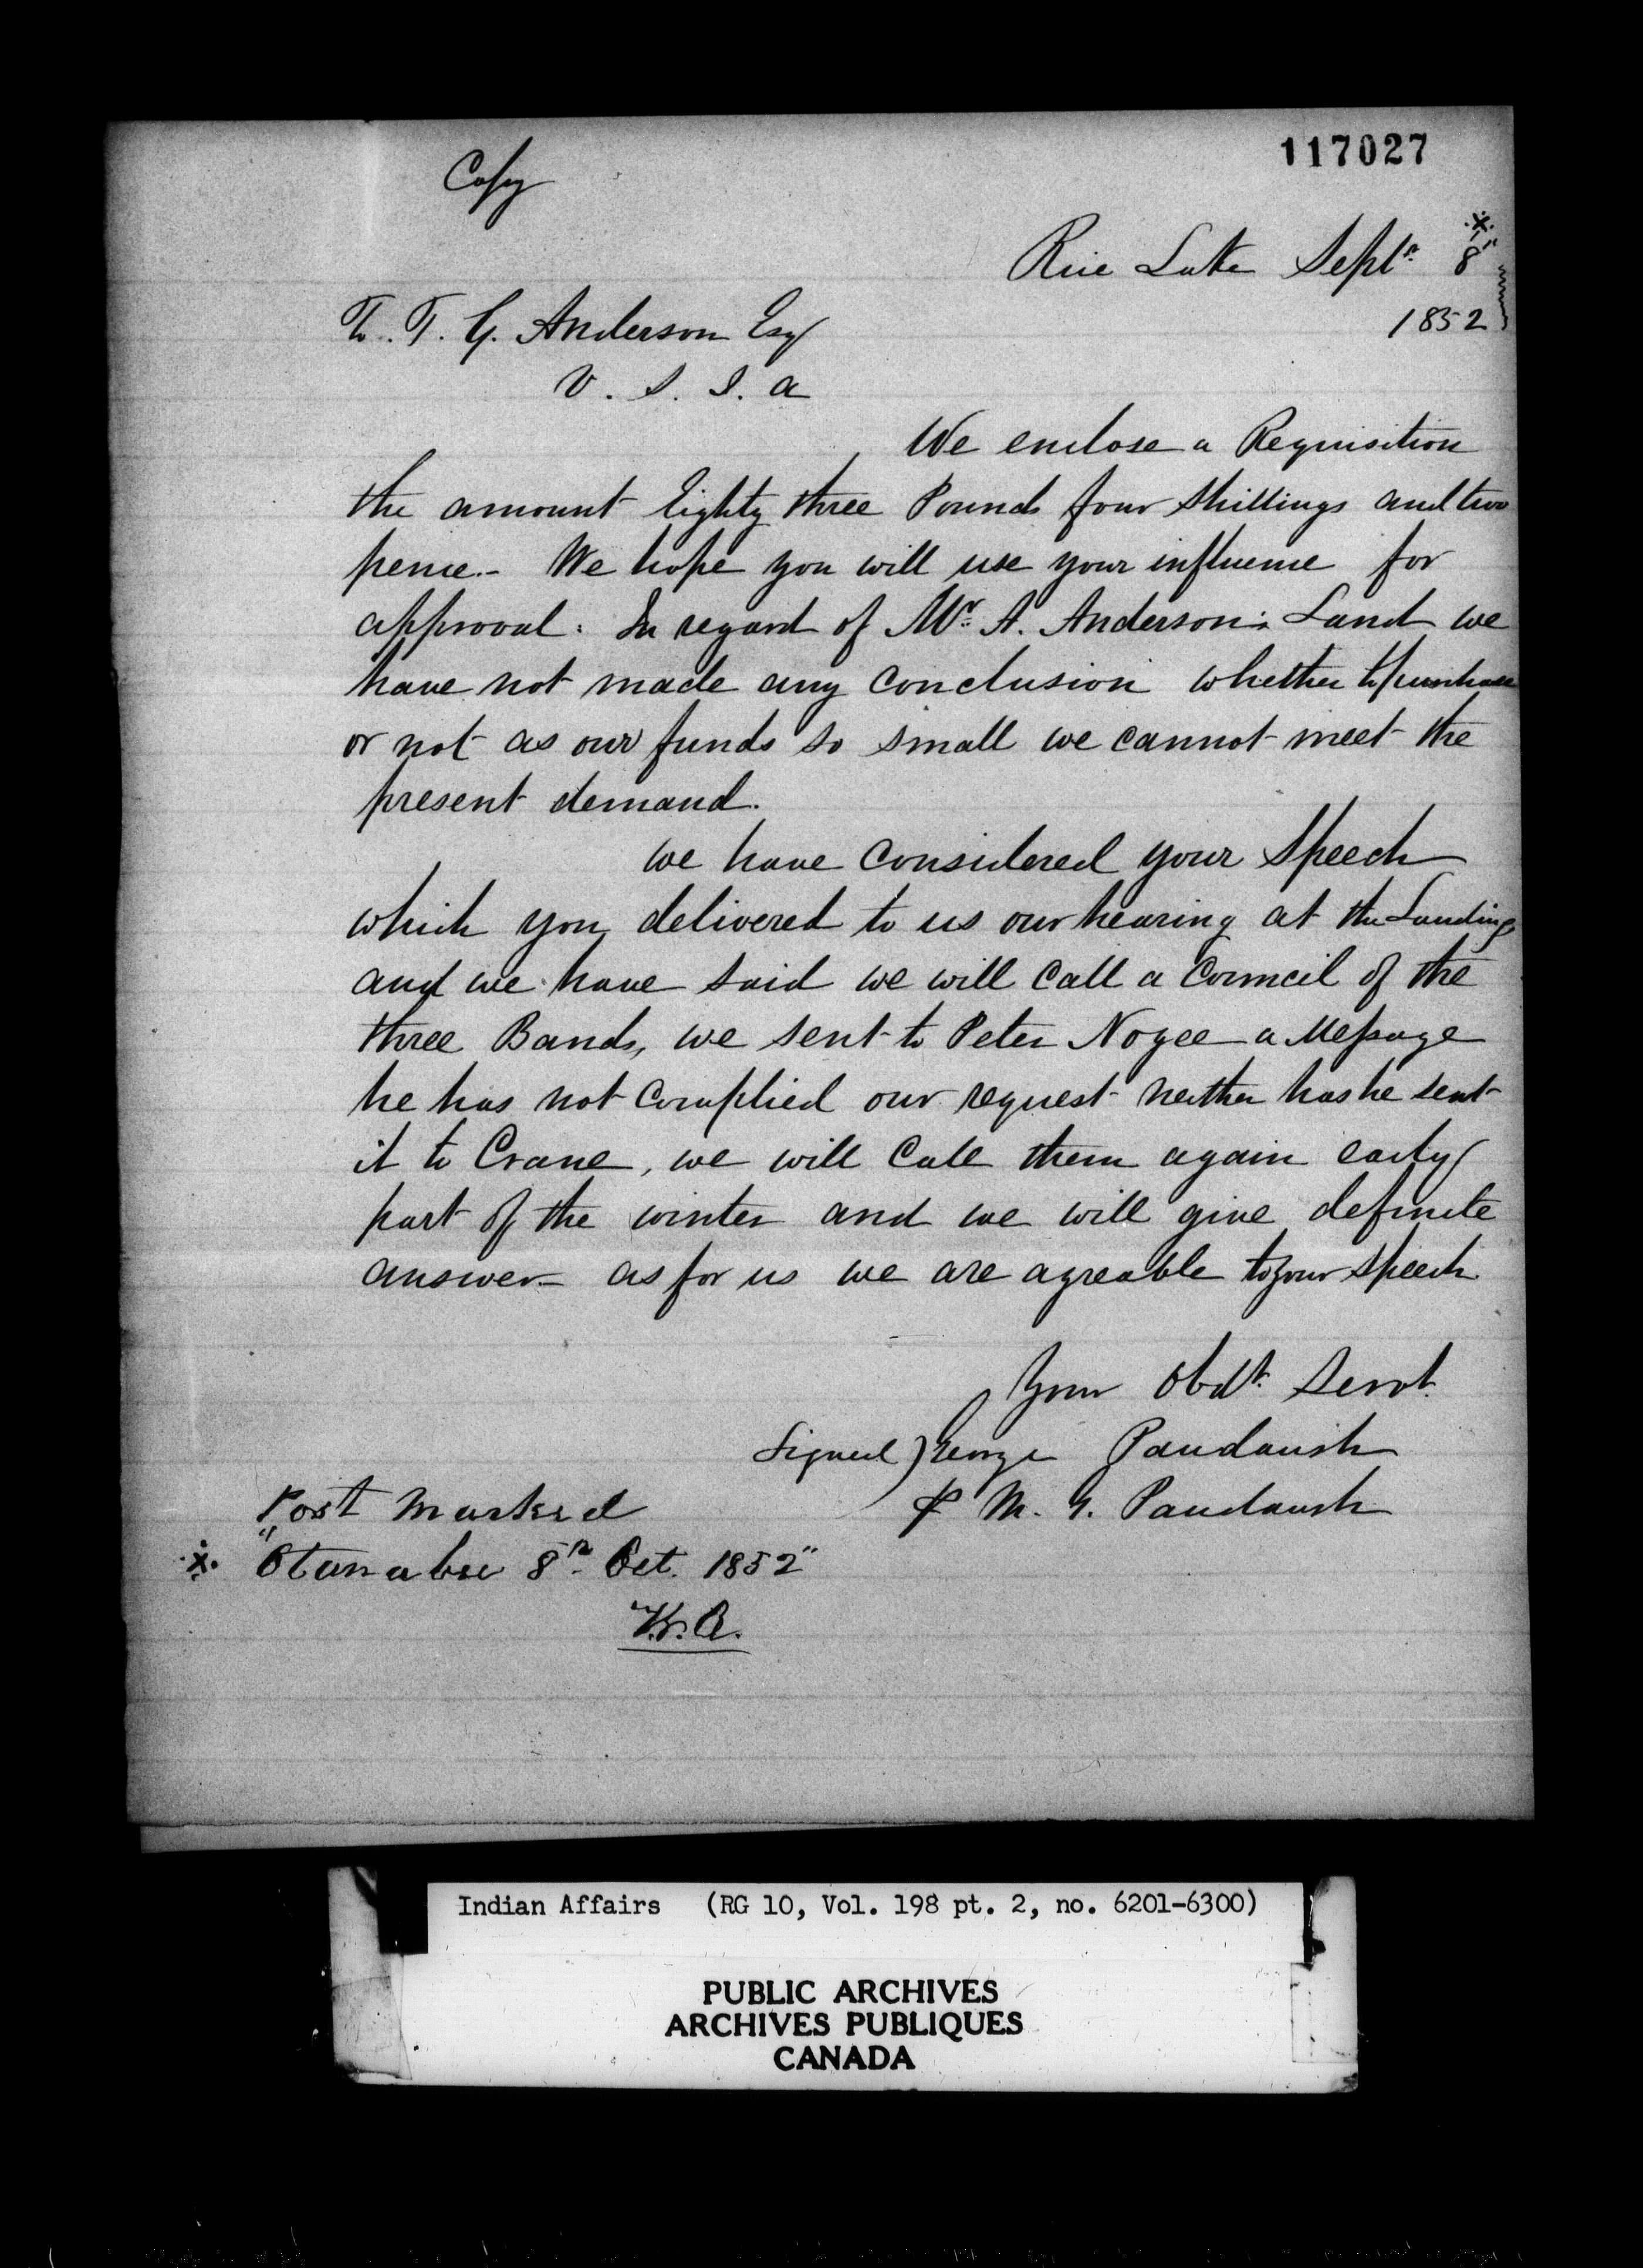 117027
Copy
Rice Lake Septr 8"
1852
To. T. G. Anderson Esq
V. S. I. a
We enclose a Requisition
the amount Eighty three Pounds four Shillings and two
pence.- We hope you will use your influence for
approval. In regard of Mr. A. Anderson's Land we
have not made any conclusion whether to purchase
or not as our funds so small we cannot meet the
present demand.
we have considered your Speech
which you delivered to us our hearing at the Landing
and we have said we will call a Council of the
three Bands, we sent to Peter Nogee a Message
he has not complied our request neither has he sent
it to Crane, we will call them again early
part of the winter and we will give definite
answer- as for us we are agreable to your Speech
Your Obdt. Servt.
Signed) George Paudaush
& M. G. Paudaush
Post Marked
"Otanabee 8th Oct. 1852"
Indian Affairs (RG 10, Vol. 198 pt. 2, no. 6201-6300)
PUBLIC ARCHIVES
ARCHIVES PUBLIQUES
CANADA